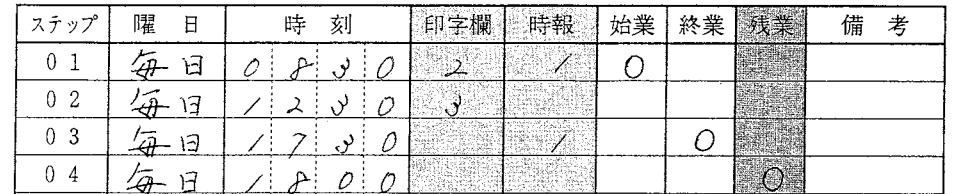 ステップ 曜 日 時 刻 印字欄 時報 始業 終業 残業 備 考
01 毎日 0830 2 1 ○
02 毎日 1230 3
03 毎日 1730 1 ○
04 毎日 1800 ○